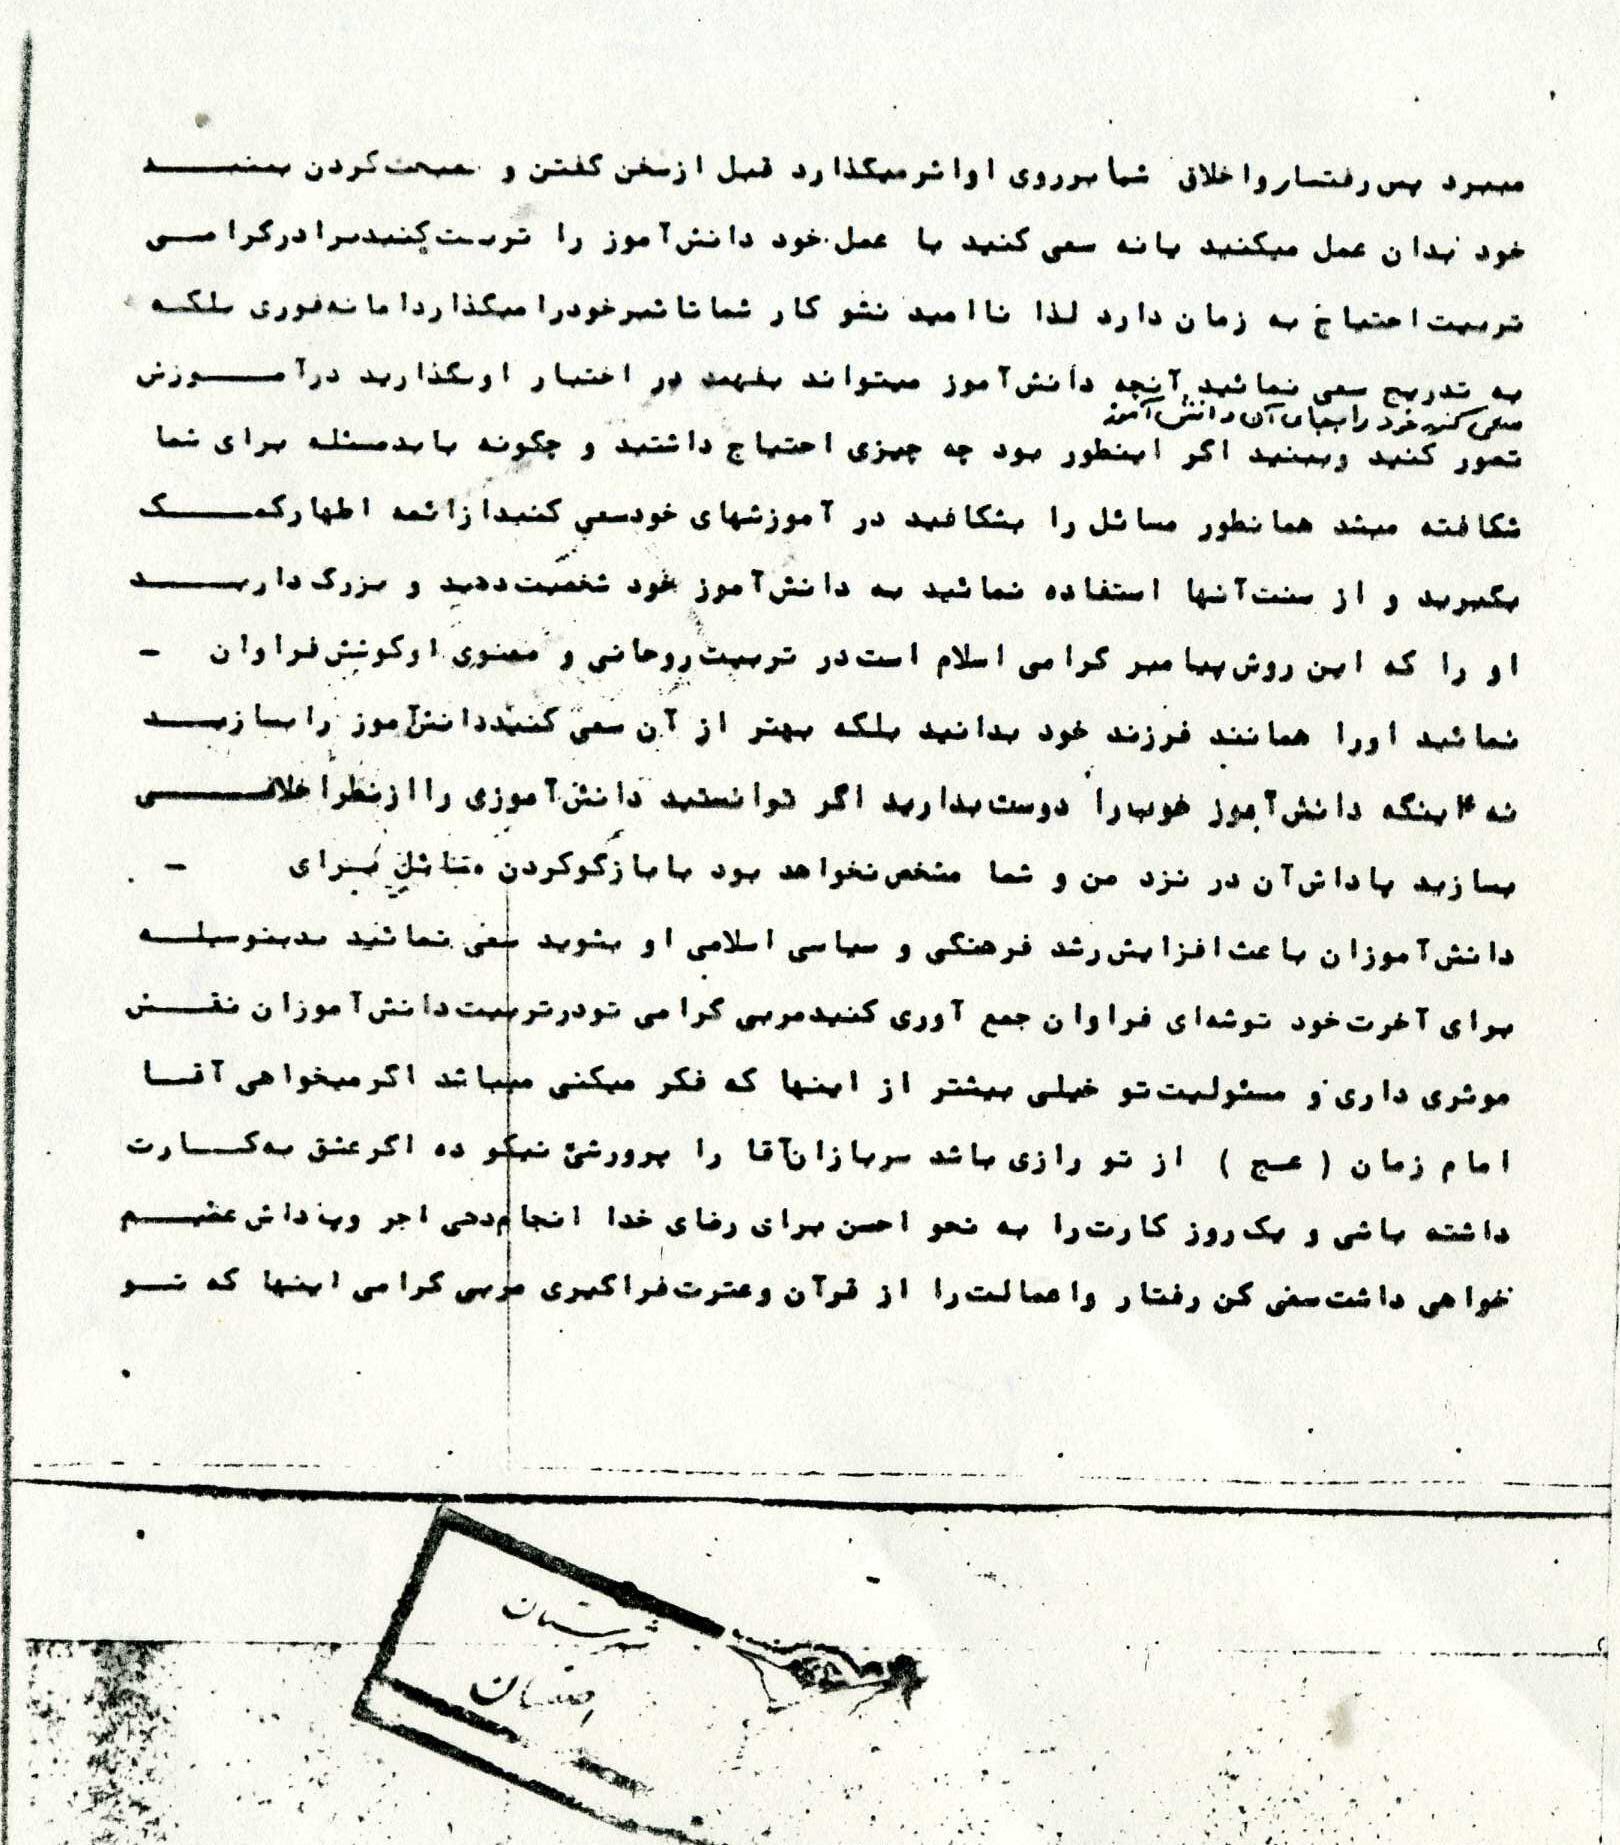 میبرد پس رفتار و اخلاق شما بر روی او اثر میگذارد قبل از سخن گفتن و صحبت کردن ببینید
خود بدان عمل میکنید یا نه سعی کنید با عمل خود دانش‌آموز را تربیت کنید برادر گرامی
تربیت احتیاج به زمان دارد لذا ناامید نشو کار شما تاثیر خود را میگذارد اما نه فوری بلکه
به تدریج سعی نمائید آنچه دانش‌آموز میتواند بفهمد در اختیار او بگذارید در آموزش
سعی کنید خود را بجای آن دانش‌آموز
تصور کنید و ببینید اگر اینطور بود چه چیزی احتیاج داشتید و چگونه باید مسئله برای شما
شکافته میشد همانطور مسائل را بشکافید در آموزشهای خود سعی کنید از ائمه اطهار کمک
بگیرید و از سنت آنها استفاده نمائید به دانش‌آموز خود شخصیت دهید و بزرگ دارید
او را که این روش پیامبر گرامی اسلام است در تربیت روحانی و معنوی او کوشش فراوان -
نمائید او را همانند فرزند خود بدانید بلکه بهتر از آن سعی کنید دانش‌آموز را بسازید
نه اینکه دانش‌آموز خوب را دوست بدارید اگر توانستید دانش‌آموزی را از نظر اخلاقی
بسازید پاداش آن در نزد من و شما مشخص نخواهد بود با بازگو کردن مسائل برای -
دانش‌آموزان باعث افزایش رشد فرهنگی و سیاسی اسلامی او بشوید سعی نمائید بدینوسیله
برای آخرت خود توشه‌ای فراوان جمع آوری کنید مربی گرامی تو در تربیت دانش‌آموزان نقش
موثری داری و مسئولیت تو خیلی بیشتر از اینها که فکر میکنی میباشد اگر میخواهی آقا
امام زمان ( عج ) از تو رازی باشد سربازان آقا را پرورشی نیکو ده اگر عشق به کارت
داشته باشی و یک روز کارت را به نحو احسن برای رضای خدا انجام دهی اجر و پاداش عظیم
خواهی داشت سعی کن رفتار و اعمالت را از قرآن و عترت فراگیری مربی گرامی اینها که تو
شهرستان